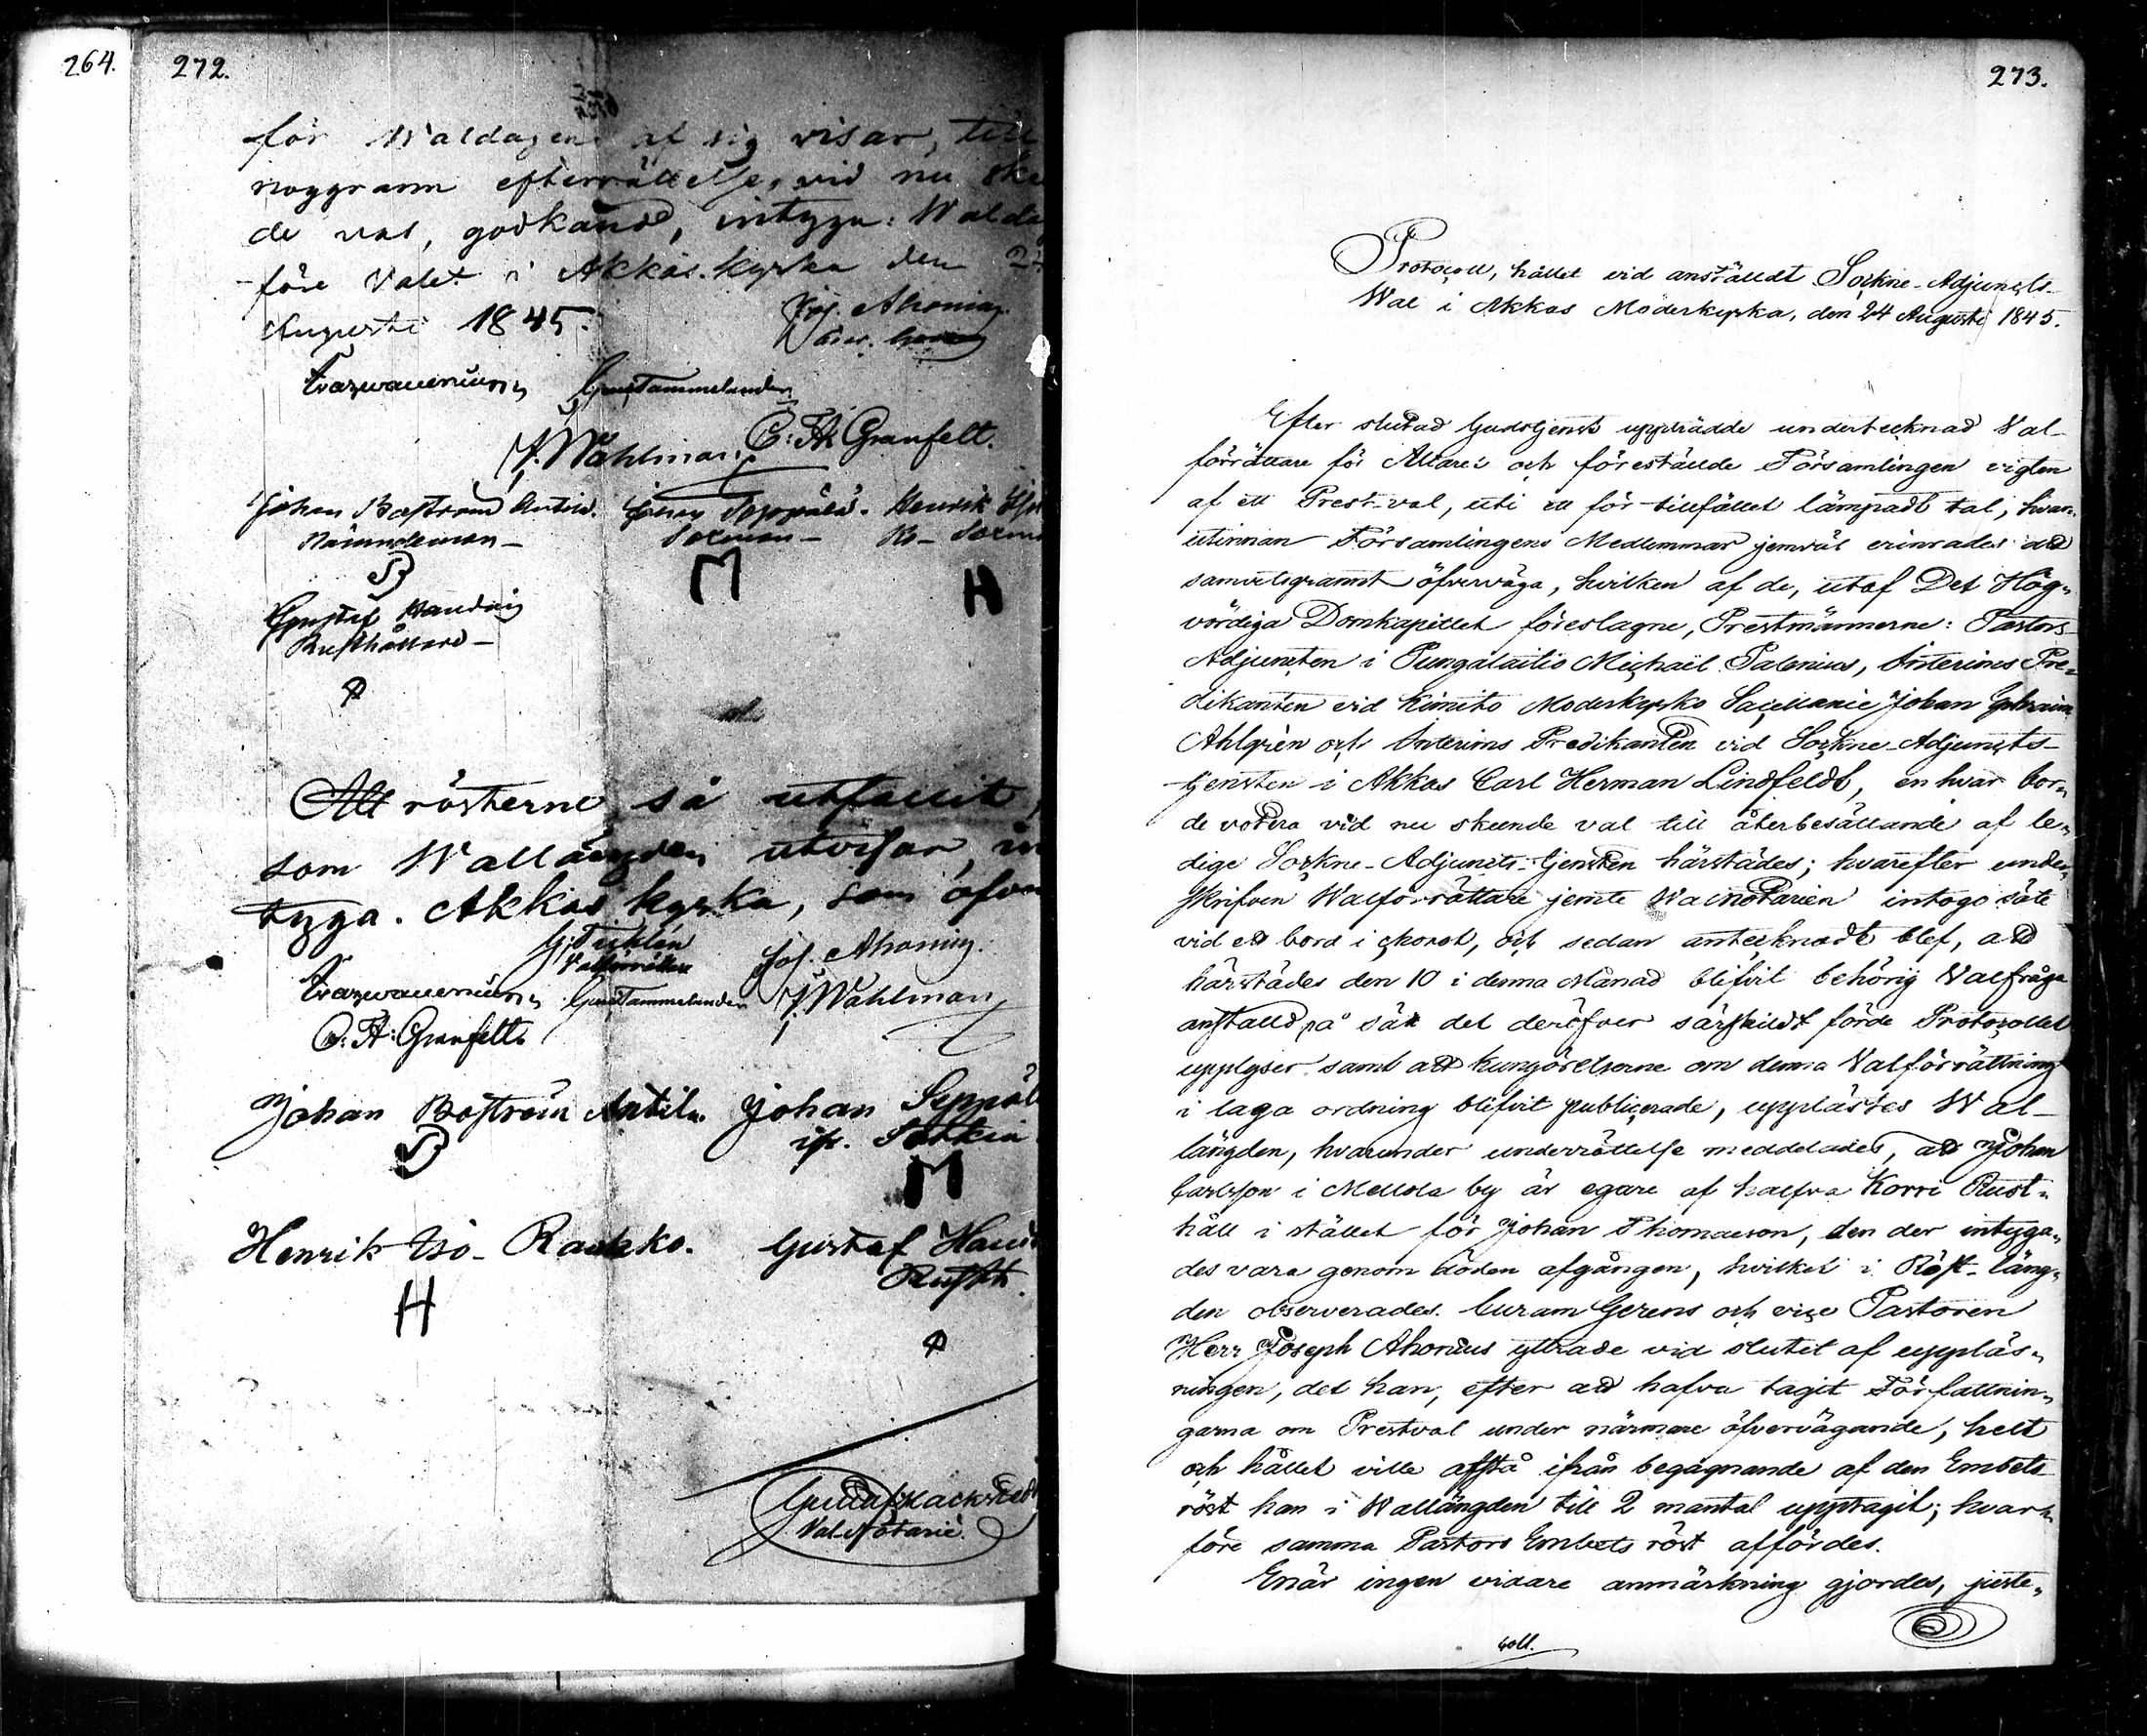 264.
272.
för Waldagen af sig visar, till
noggrann efterrättelse, vid nu ske
de val, godkänd, intyga: Walda
före Valet i Akkas kyrka den 24
Augusti 1845.
Jos. Ahonius
Gust Tammelander
J. Wahlman
C: Fr Granfelt.
Johan Boström Antila. Seppälä. Henrik
Nämndeman
B M H
Gustaf
Rusthållare
Att rösterne så utfallit,
som Wallängden utvisar, in
tyga. Akkas kyrka, som ofvan
Valförrättare
Jos. Ahonius.
Gust Tammelander J. Wahlman
C. Fr: Granfelt
Johan Boström Antila. Johan Seppäl
B M
Henrik Iso-Rankko. Gustaf
Rusth.
H
Val-Notarie.
273.
Protocoll, hållet vid anstäldt Sockne-Adjuncts-
Wal i Akkas Moderkyrka, den 24 Augusti 1845.
Efter slutad Gudstjenst uppträdde undertecknad Val-
förrättare för Altaret och föreställde Församlingen vigten
af ett Prest-val, uti ett för tillfället lämpadt tal, hvar-
utinnan Församlingens Medlemmar jemväl erinrades att
samvetsgrannt öfverväga, hvilken af de, utaf Det Hög-
vördiga Domkapitlet föreslagne, Prestmännerne: Pastors-
Adjuncten i Pungalaitio Michaël Palenius, Interims Pre-
dikanten vid Kimito Moderkyrko Sacellanie Johan Ephraim
Ahlgrén och Interims Predikanten vid Sockne-Adjuncts-
tjensten i Akkas Carl Herman Lindfeldt, en hvar bor-
de votera vid nu skeende val till återbesättande af le-
diga Sockne-Adjuncts-tjensten härstädes; hvarefter under-
skrifven Walförrättare jemte Walnotarien intogo säte
vid ett bord i choret, och sedan antecknadt blef, att
härstädes den 10 i denna Månad blifvit behörig Valfråga
anställd på sätt det deröfver särskildt förde Protocollet
upplyser samt att kungörelserne om denna Valförrättning
i laga ordning blifvit publicerade, upplästes Wal-
längden, hvarunder underrättelse meddelades, att Johan
Carlsson i Mellola by är egare af halfva Korri Rust-
håll i stället för Johan Thomasson, den der intyga-
des vara genom döden afgången, hvilket i Röst-läng-
den observerades. Curam Gerens och vice Pastoren
Herr Joseph Ahonius yttrade vid slutet af uppläs-
ningen, det han, efter att hafva tagit Författnin-
garna om Prestval under närmare öfvervägande, helt
och hållet ville afstå ifrån begagnande af den Embets-
röst han i Wallängden till 2 mantal upptagit; hvar-
före samma Pastors Embets röst affördes.
Enär ingen vidare anmärkning gjordes, juste-
coll.